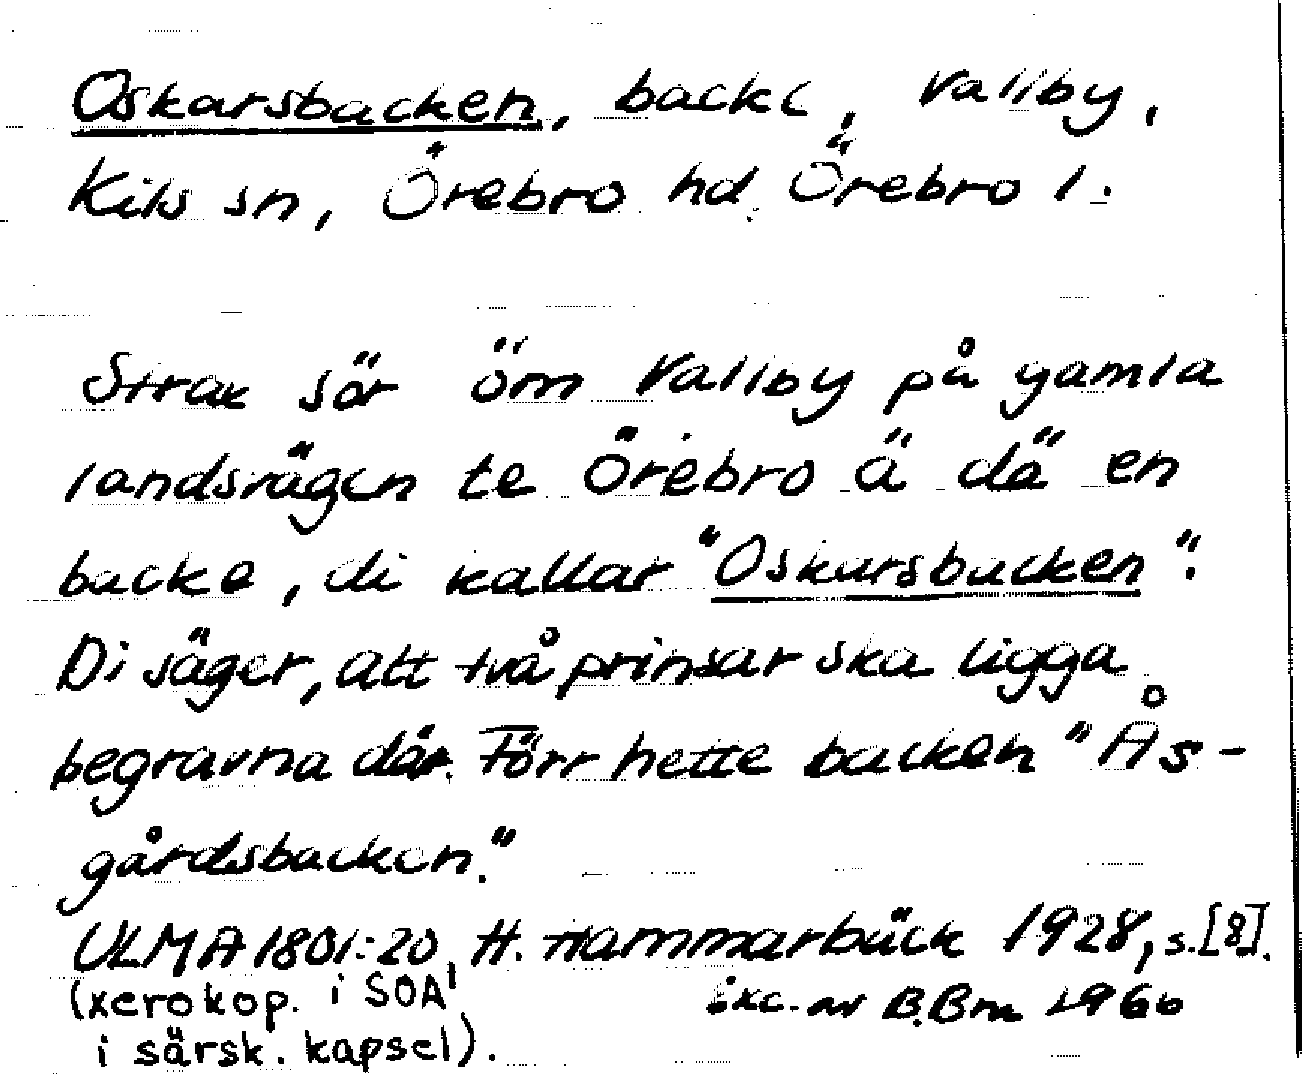 Oskarsbacken, backe, Vallby,
Kils sn, Örebro hd Örebro l.
Strax sör öm Vallby på gamla
landsvägen te Örebro ä dä en
backe, di kallar "Oskarsbacken".
Di säger, att två prinsar ska ligga
begravna där. Förr hette backen "Ås-
gårdsbacken."
ULMA 1801:20, H. Hammarbäck 1928, s.[8].
(xerokop. i SOA
Exc. av B.Bm 1966
i särsk. kapsel).